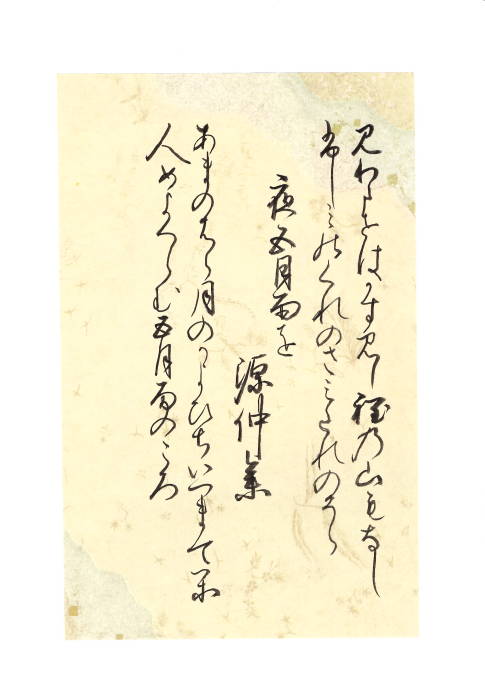 見わたせはかす見し程乃山もなし
ふしみのくれのさみたれのそら
夜五月雨を
源仲業
あまのはら月のかよひちいつまてか
人めよくらむ五月雨のころ